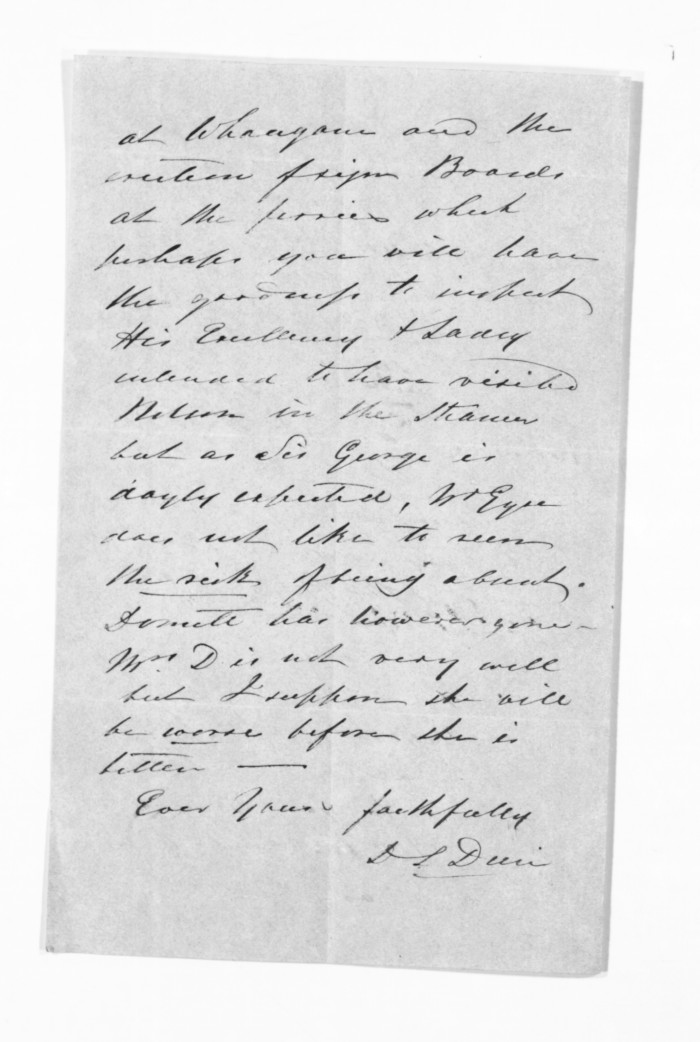 at Whanganui and the
erection of sign Boards
at the ferries which
perhaps you will have
the goodness to inspect
His Excellency & Lady
intended to have visited
Nelson in the Steamer
but as Sir George is
dayly expected, Mr Eyre
does not like to
the risk of being absent.
Domett has however gone –
Mrs D is not very well
but I suppose she will
be worse before she is
better —
Ever Yours faithfully
D